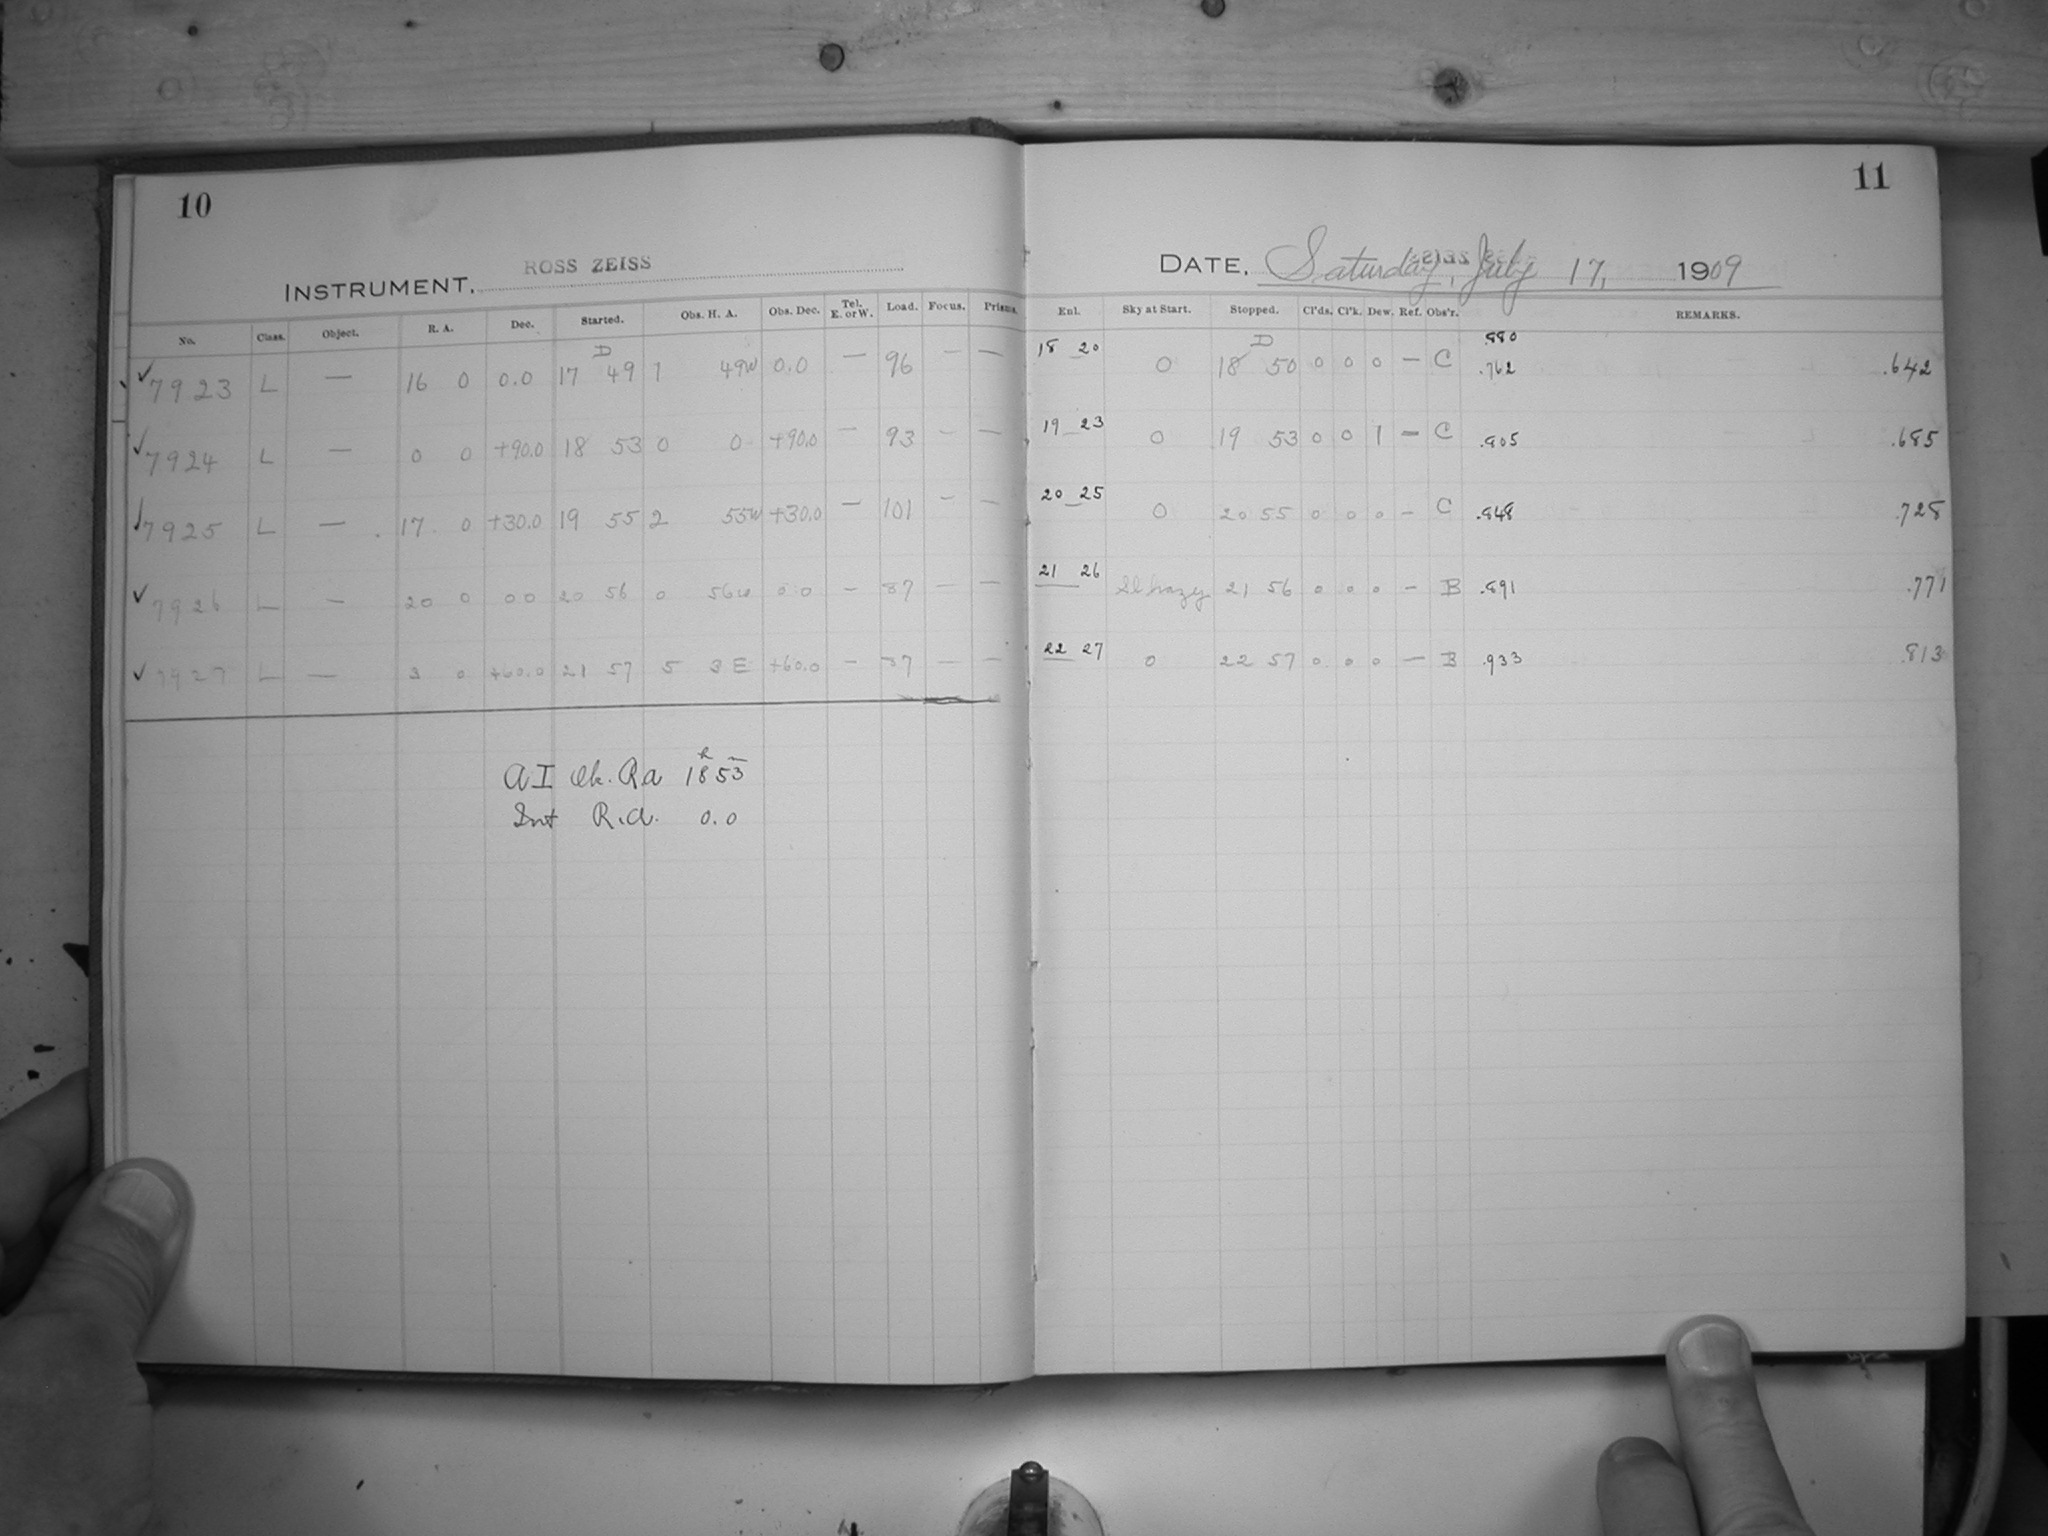 10
INSTRUMENT. ROSS ZEISS
No. Class. Object. R. A. Dec. Started. Obs. H. A. Obs. Dec. Tel. E. or W. Load. Focus. Prisms.
✓ 7923 L — 16 0 0.0 D 17 49 1 49W 0.0 — 96 — —
✓ 7924 L — 0 0 +90.0 18 53 0 0 +90.0 — 93 — —
✓ 7925 L — 17 0 +30.0 19 55 2 55W +30.0 — 101 — —
✓ 7926 L — 20 0 0 0 20 56 0 56W 0 0 — 87 — —
✓ 7927 L — 3 0 +60.0 21 57 5 3 E +60.0 — 87 — —
18h 53m
Int R.A. 0.0
11
DATE, Saturday, July 17, 1909
Enl. Sky at Start. Stopped. Cl'ds. Cl'k. Dew. Ref. Obs'r. REMARKS.
18 20 0 D 18 50 0 0 0 — C .762 .642
19 23 0 19 53 0 0 1 — C .805 .685
20 25 0 20 55 0 0 0 – C .848 .728
21 26 Sl hazy 21 56 0 0 0 — B .891 .771
22 27 0 22 57 0 0 0 — B .933 .813